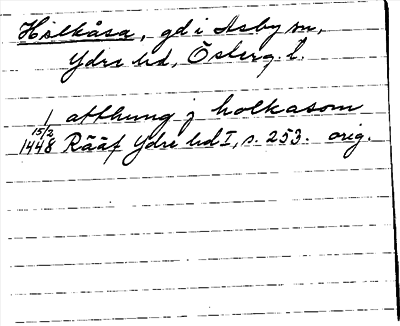 Holkåsa, gd i Asby sn,
Ydre hd, Österg. l.
1 affhung j holkasom
15/2
1448 Rääf Ydre hd I, s. 253. orig.